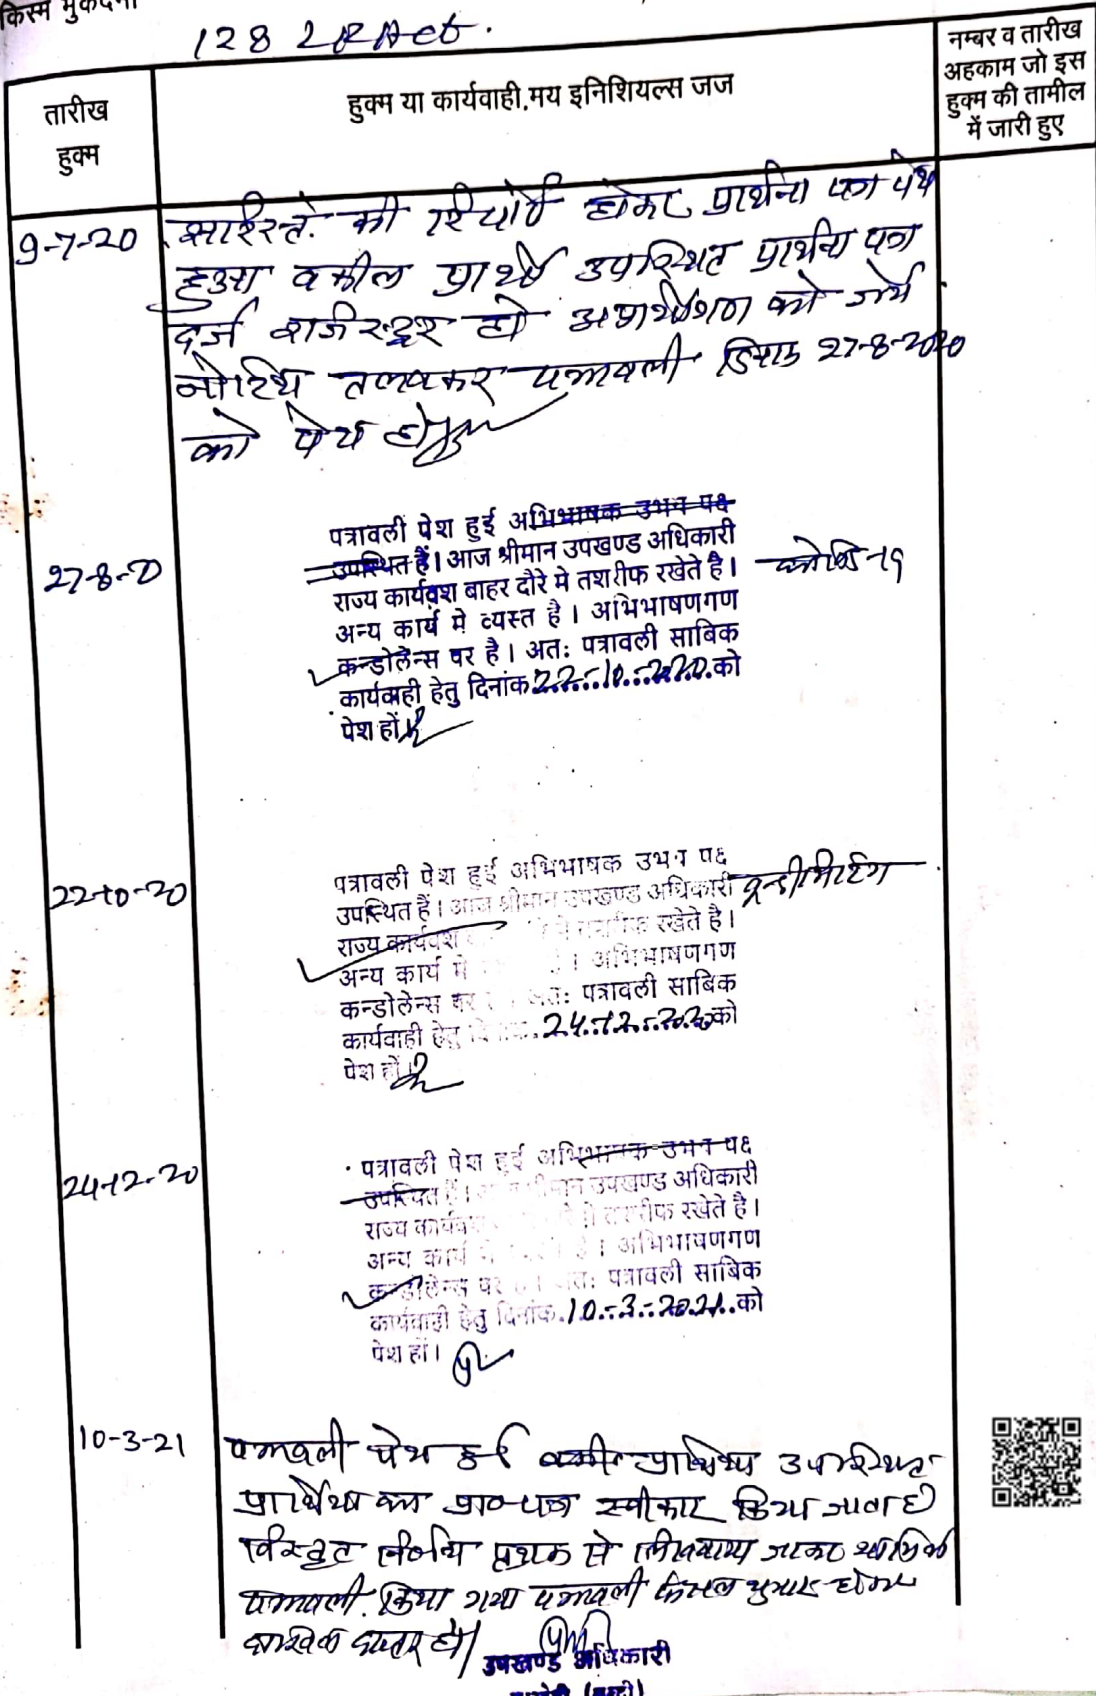 किस्म मुकदमा
128 LR Act.
तारीख
हुक्म
हुक्म या कार्यवाही.मय इनिशियल्स जज
नम्बर व तारीख
अहकाम जो इस
हुक्म की तामील
में जारी हुए
9-7-20
की रिपोर्ट होकर प्रार्थना पत्र पेश
हुआ वकील प्रार्थी उपस्थित प्रार्थना पत्र
दर्ज रजिस्टर हो अप्रार्थीगण को जर्ये
नोटिस तलबकर पत्रावली दिनांक 27-8-2020
को पेश हो
27-8-20
पत्रावली पेश हुई अभिभाषक उभय पक्ष
उपस्थित हैं। आज श्रीमान उपखण्ड अधिकारी
राज्य कार्यवश बाहर दौरे मे तशरीफ रखेते है।
कोविड-19
अन्य कार्य मे व्यस्त है। अभिभाषणगण
कन्डोलेन्स पर है। अतः पत्रावली साबिक
कार्यवाही हेतु दिनांक 22-10-2020 को
पेश हों
22-10-20
पत्रावली पेश हुई अभिभाषक उभय पक्ष
उपस्थित हैं। आज श्रीमान उपखण्ड अधिकारी
राज्य कार्यवश रखेते है।
अन्य कार्य मे । अभिभाषणगण
कन्डोलेन्स पर अतः पत्रावली साबिक
कार्यवाही हेतु 24-12-2020 को
पेश हों
24-12-20
पत्रावली पेश हुई अभिभाषक उभय पक्ष
उपस्थित हैं। श्रीमान उपखण्ड अधिकारी
राज्य कार्यवश तशरीफ रखेते है।
अन्य कार्य मे । अभिभाषणगण
कन्डोलेन्स पर अतः पत्रावली साबिक
कार्यवाही हेतु दिनांक 10-3-2021 को
पेश हों।
10-3-21
पत्रावली पेश हुई वकील उपस्थित
का स्वीकार किया जाता है
विस्तृत निर्णय पृथक से लिखवाया जाकर शामिल
पत्रावली किया गया पत्रावली फैसल शुमार होकर
दाखिल दफ्तर हो।
उपखण्ड अधिकारी